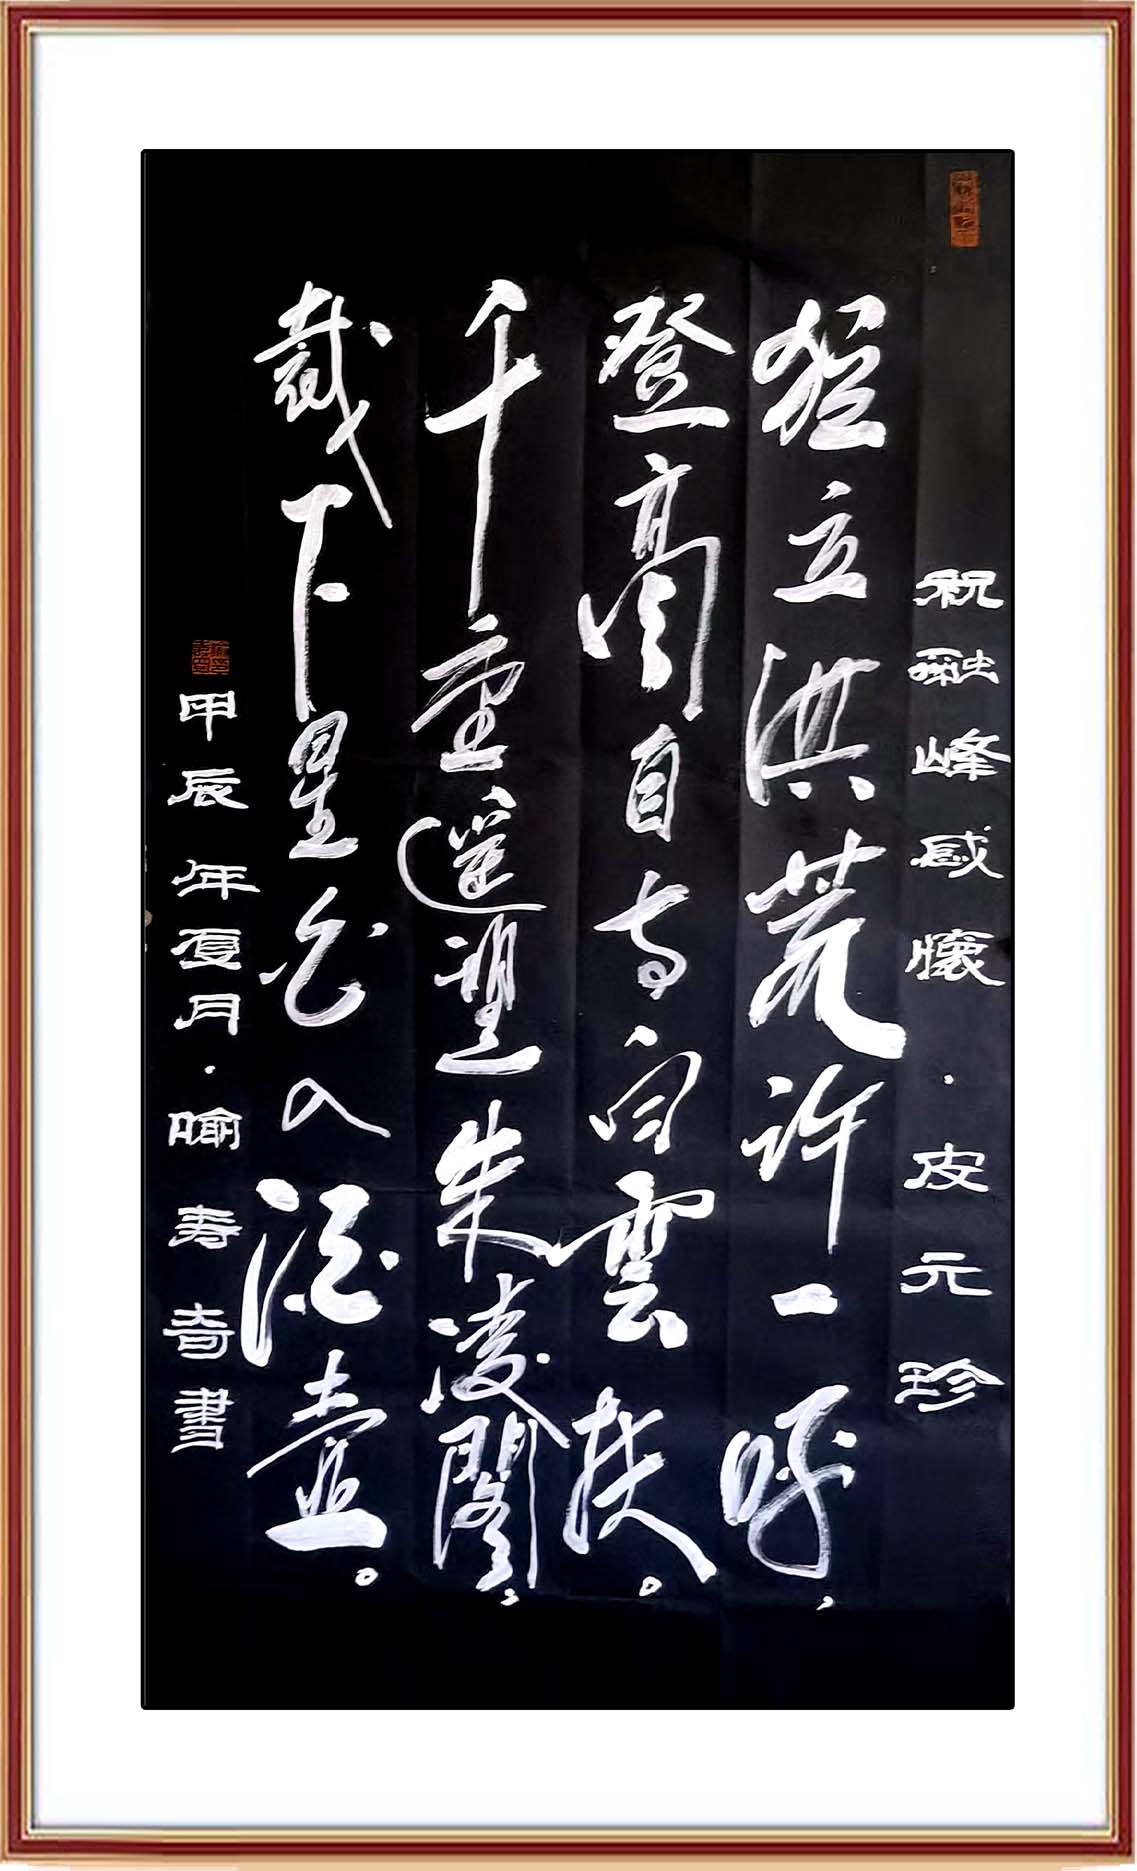 祝融峰感懷·皮元珍
立洪荒許一呼，
登高自有白雲扶。
千重遥望朱凌閣，
裁下星光入酒壺。
甲辰年夏月·喻寿奇書